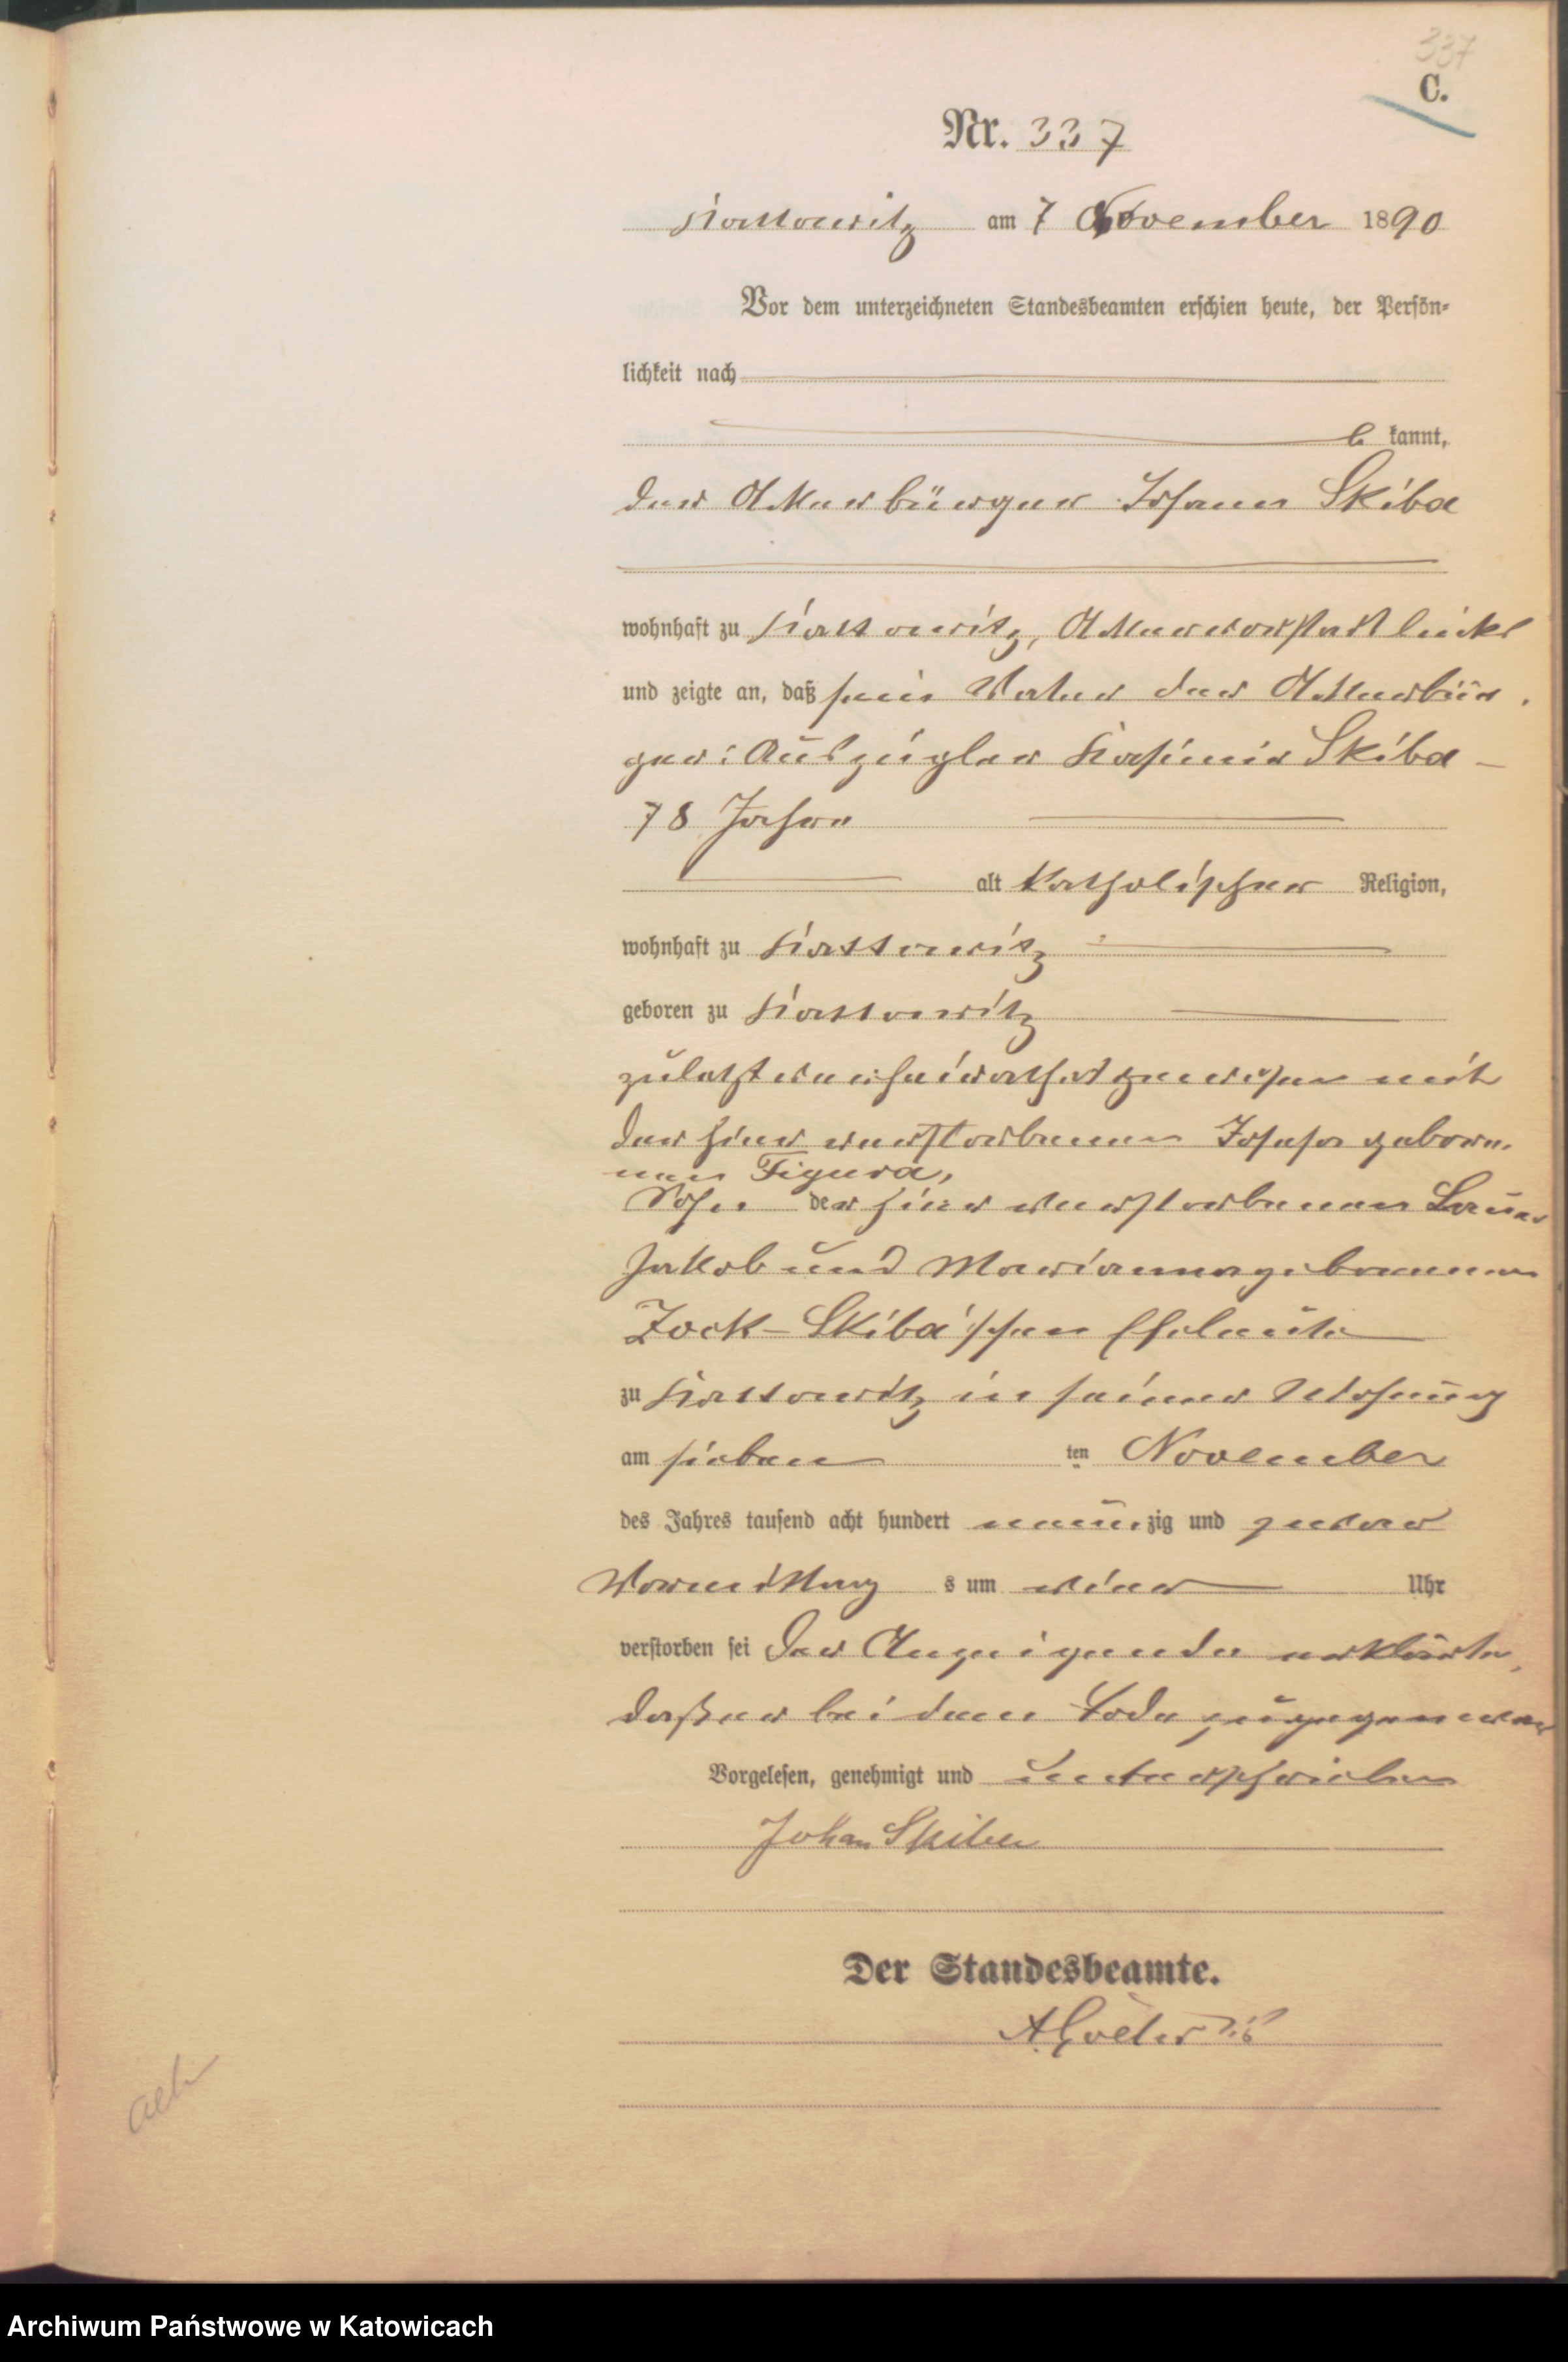 337
C.
Nr. 337
Kattowitz am 7 November 1890
Vor dem unterzeichneten Standesbeamten erschien heute, der Persön-
lichkeit nach
b kannt,
der Ackerbürger Johann Skiba
wohnhaft zu Kattowitz, Ackervorstadt links
und zeigte an, daß sein Vater der Ackerbür-
ger: Auszügler Kasimir Skiba
78 Jahre
alt katholischer Religion,
wohnhaft zu Kattowitz
geboren zu Kattowitz
zuletzt verheirathet gewesen mit
der hier verstorbenen Josefa gebore-
nen Figura,
Sohn der hier verstorbenen Bauer
Jakob und Marianna geborenen
Zock-Skiba'schen Eheleute
zu Kattowitz in seiner Wohnung
am sieben ten November
des Jahres tausend acht hundert neunzig und zwar
Vormittag s um vier Uhr
verstorben sei Der Anzeigende erklärte,
daß er bei dem Tode zugegen war
Vorgelesen, genehmigt und unterschrieben
Johan Skiba
Der Standesbeamte.